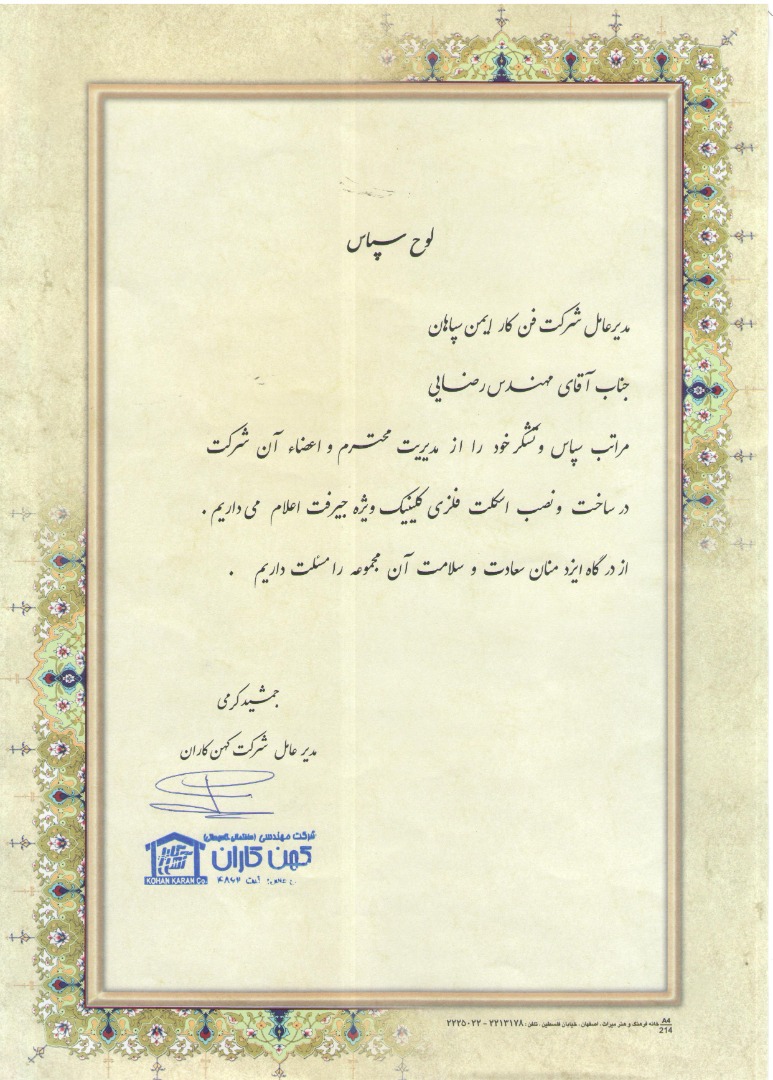 لوح سپاس
مدیرعامل شرکت فن کار ایمن سپاهان
جناب آقای مهندس رضایی
مراتب سپاس و تشکر خود را از مدیریت محترم و اعضاء آن شرکت
در ساخت و نصب اسکلت فلزی کلینیک ویژه جیرفت اعلام می داریم .
از درگاه ایزد منان سعادت و سلامت آن مجموعه را مسئلت داریم .
جمشید کرمی
مدیر عامل شرکت کهن کاران
شرکت مهندسی (ساختمانی تاسیساتی)
کهن کاران
KOHAN KARAN Co.
ثبت ۴۸۶۲
A4
214
خانه فرهنگ و هنر میراث . اصفهان . خیابان فلسطین . تلفن : ۲۲۱۳۱۷۸ - ۲۲۲۵۰۲۲